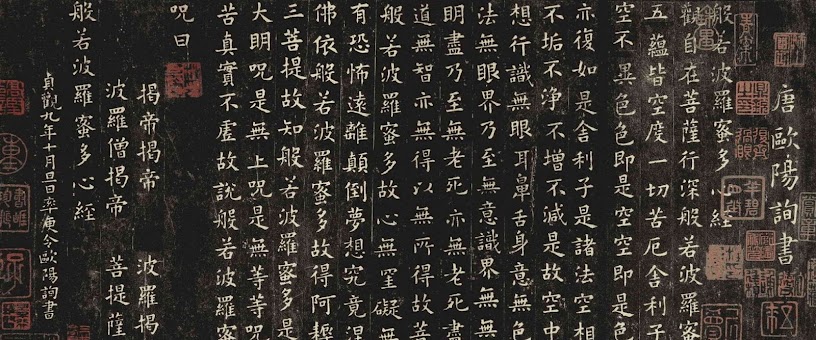 唐歐陽詢書
般若波羅蜜多心經
觀自在菩薩行深般若波羅蜜
五蘊皆空度一切苦厄舍利子
空不異色色即是空空即是
亦復如是舍利子是諸法空相
不垢不淨不增不減是故空中
想行識無眼耳鼻舌身意無色
法無眼界乃至無意識界無無
明盡乃至無老死亦無老死盡
道無智亦無得以無所得故菩
般若波羅蜜多故心無罣礙無
有恐怖遠離顛倒夢想究竟涅
佛依般若波羅蜜多故得阿耨
三菩提故知般若波羅蜜多是
大明呪是無上呪是無等等呪
苦真實不虛故說般若波羅蜜
呪曰
揭帝揭帝 波羅揭
波羅僧揭帝 菩提薩
般若波羅蜜多心經
貞觀九年十月旦日率更令歐陽詢書